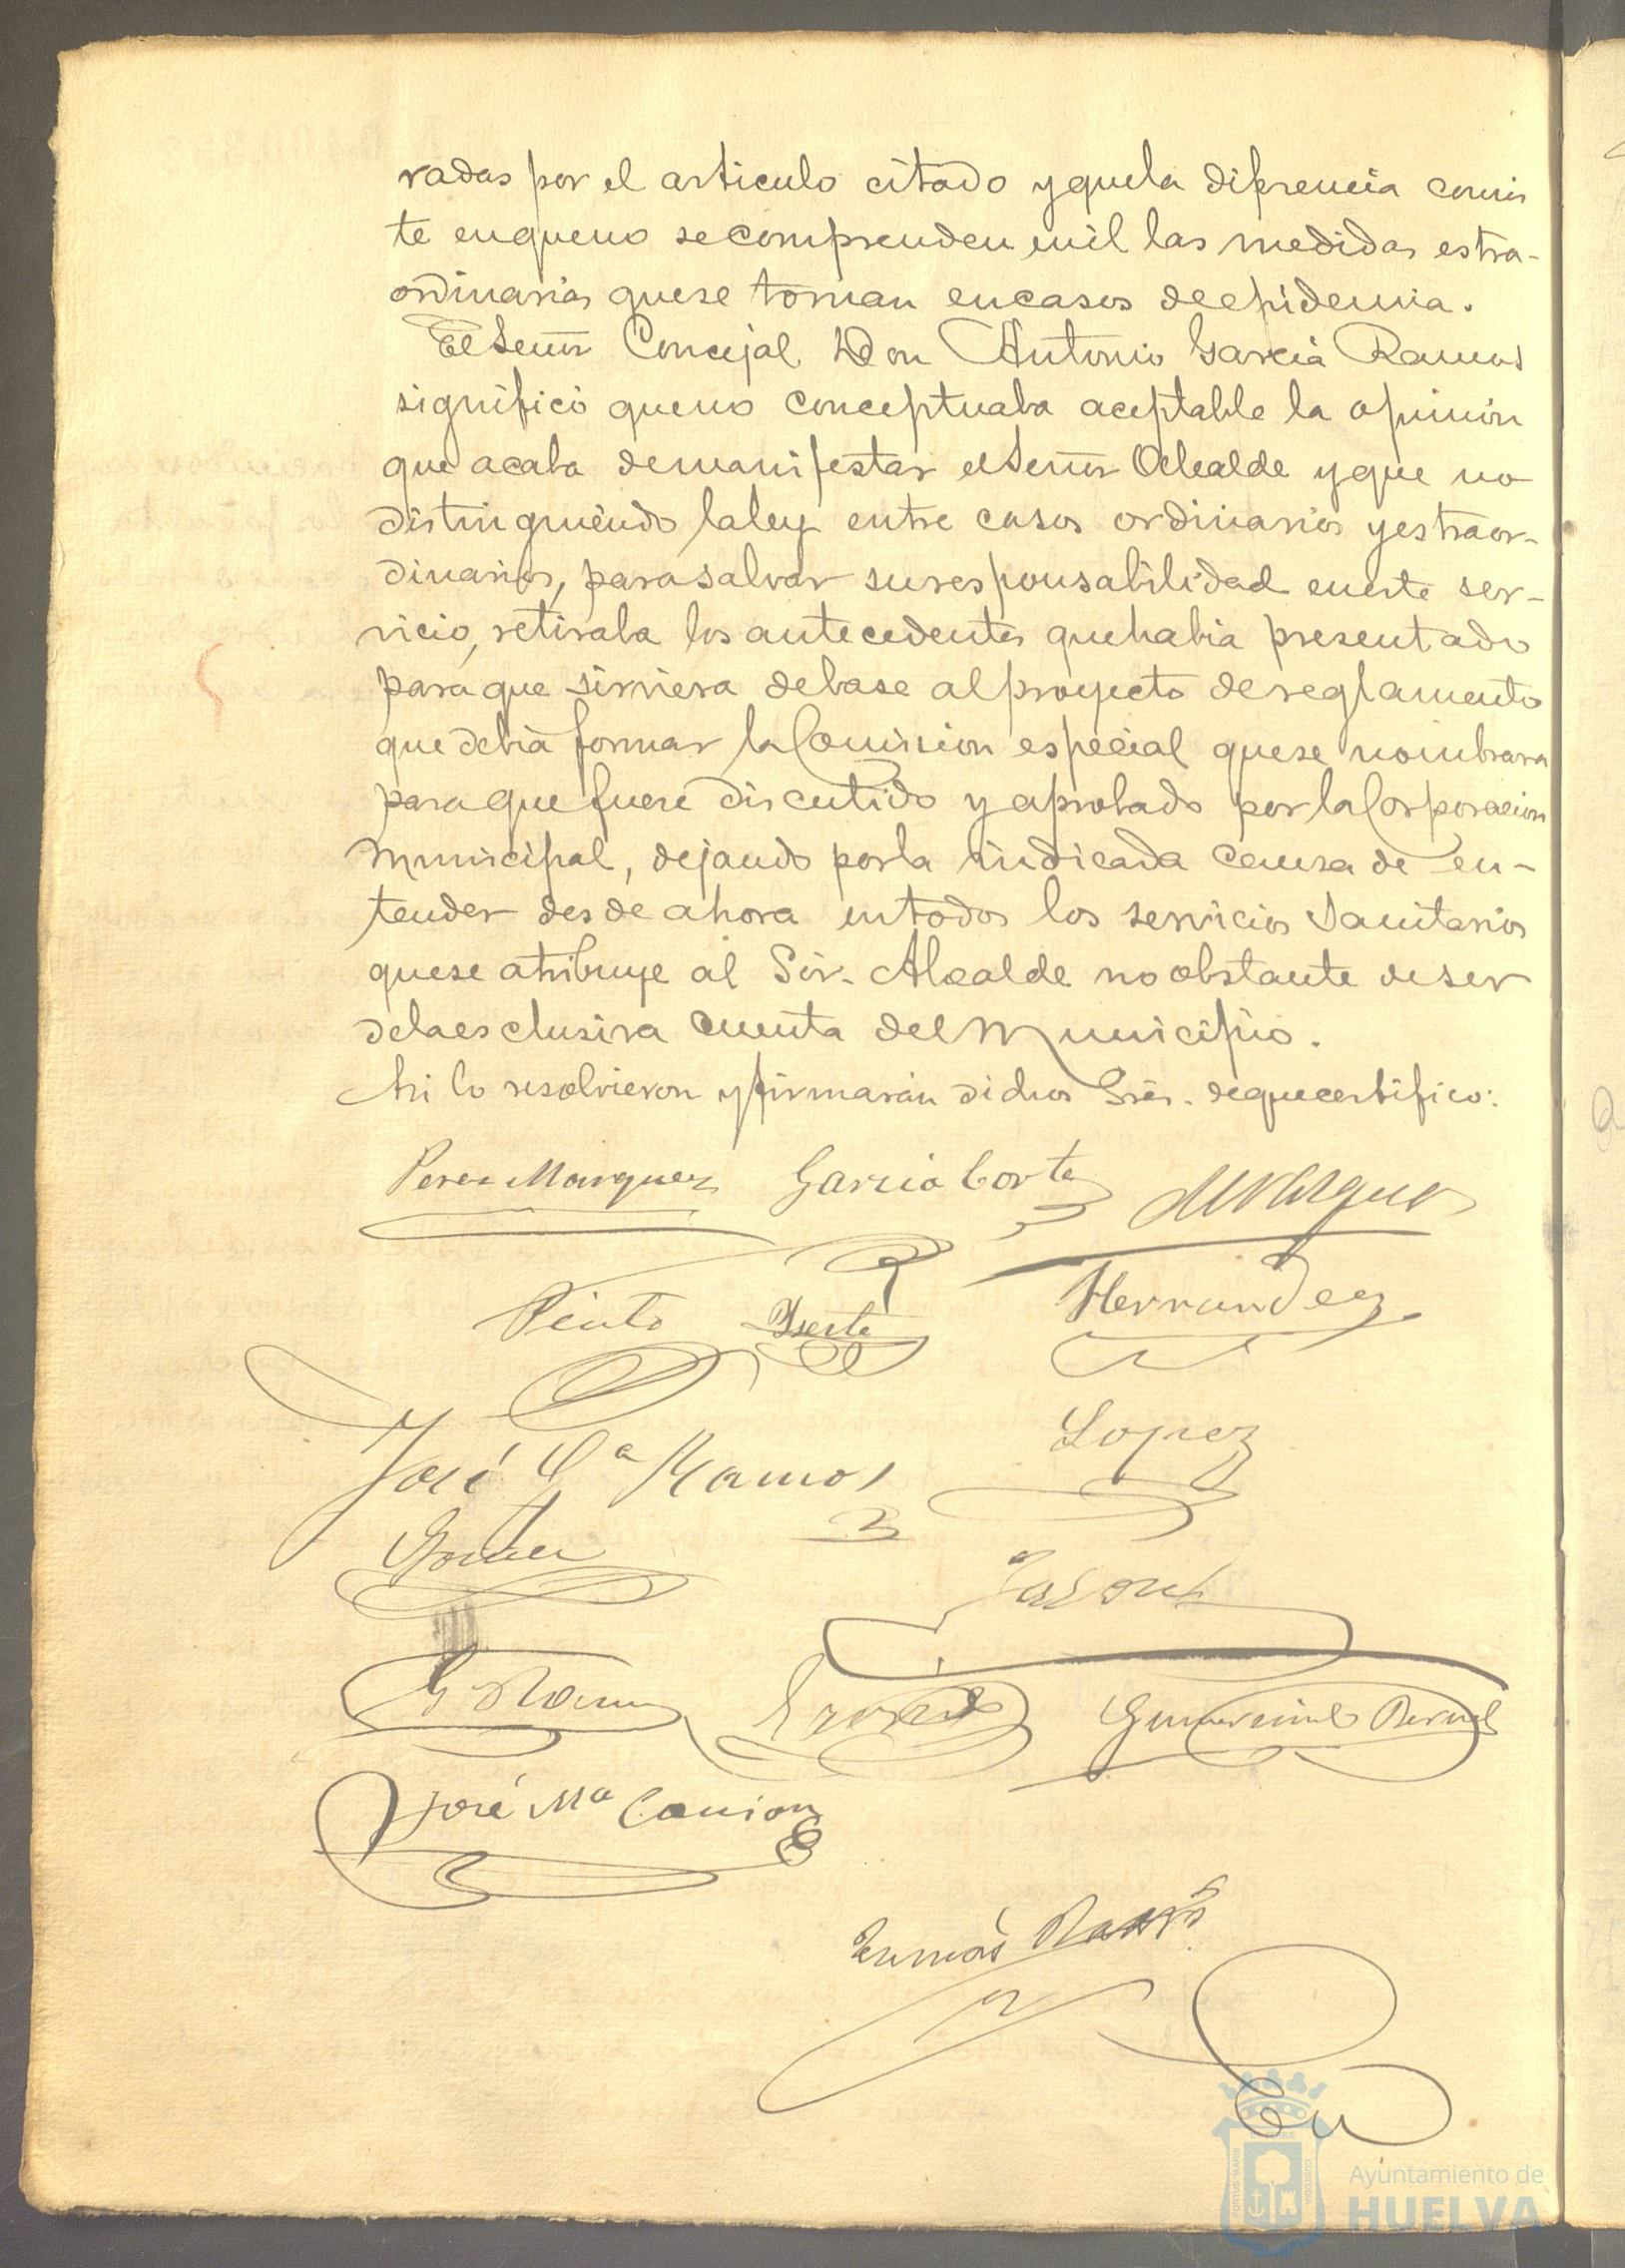 radas por el articulo citado y que la difrencia consis
te en que no se comprenden en él las medidas estra-
ordinarias que se toman en casos de epidemia.
El Señor Concejal Don Antonio Garcia Ramos
significó que no conceptuaba aceptable la opinion
que acaba de manifestar el Señor Alcalde y que no
distinguiendo la ley entre casos ordinarios y estraor-
dinarios, para salvar su responsabilidad en este ser-
vicio, retiraba los antecedentes que habia presentado
para que sirviera de base al proyecto de reglamento
que debia formar la Comision especial que se nombrara
para que fuere discutido y aprobado por la Corporacion
Municipal, dejando por la indicada causa de en-
tender desde ahora en todos los servicios Sanitarios
que se atribuye al Sór. Alcalde no obstante de ser
de la esclusiva cuenta del Municipio.
Asi lo resolvieron y firmarán dichos Sres. de que certifico:
Perez Marquez Garcia Corte
Pinto Hernandez
José Gª Ramos Lopez
Gomez
G Ramos Gumersindo Bernal
José Mª Cansion
Tomás
Ayuntamiento de
HUELVA